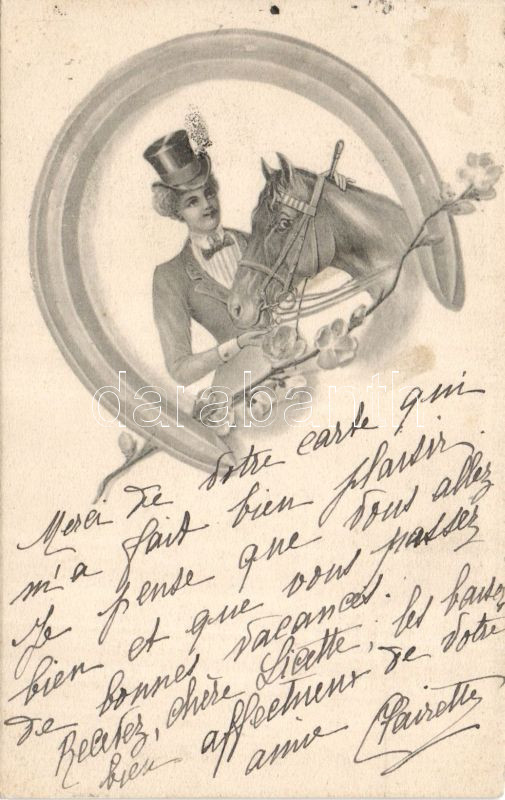 Merci de votre carte qui
m'a fait bien plaisir.
Je pense que vous allez
bien et que vous passez
de bonnes vacances.
Recevez, chère Licette, les baisers
bien affectueux de votre
amie Clairette
darabanth.com